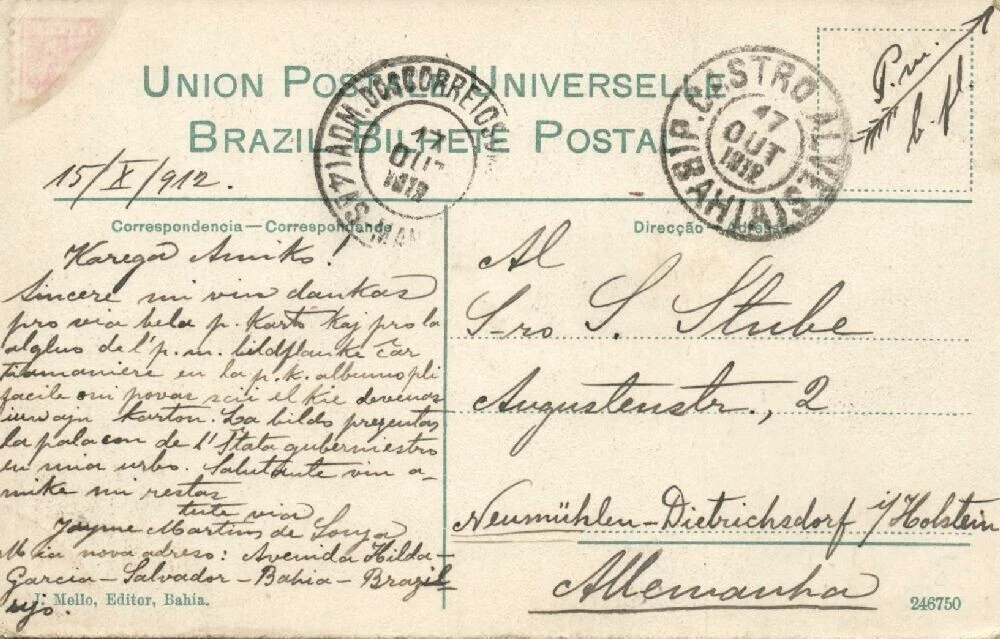 UNION POSTALE UNIVERSELLE
BRAZIL BILHETE POSTAL
P. m.
b. fl.
ADM. DOS CORREIOS
17
OUT
1912
P. CASTRO ALVES
17
OUT
1912
(BAHIA)
15/X/912.
Correspondencia — Correspondance
Direcção — Adresse
Karega Amiko!
Sincere mi vin dankas
pro via bela p. karto kaj pro la
algluo de l' p. m. bildflanke ĉar
tiamaniere en la p. k. albumo pli
facile oni povas scii el kie devenas
iu karton. La bildo prezentas
la palacon de l' Ŝtata guberniestro
en mia urbo. Salutante vin a-
mike mi restas
tute via
Jayme Martins de Souza
Mia nova adreso: Avenida Hilda-
Garcia - Salvador - Bahia - Brazil-
ujo.
Al
S-ro S. Stube
Augustenstr., 2
Neumühlen-Dietrichsdorf i/Holstein
Allemanha
J. Mello, Editor, Bahia.
246750